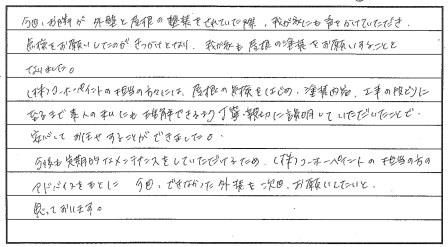 今回、お隣が外壁と屋根の塗装をされていた際、我が家にも声をかけていただき、
点検をお願いしたのがきっかけとなり、我が家も屋根の塗装をお願いすることと
なりました。
(株)コーホーペイントの担当の方々には、屋根の点検をはじめ、塗装内容、工事の段どりに
なるまで素人の私にも理解できるよう丁寧・親切に説明していただいたことで
安心してお任せすることができました。
今後も定期的なメンテナンスをしていただけるため、(株)コーホーペイントの担当の方の
アドバイスをもとに 今回、できなかった外装を次回、お願いしたいと
思っております。